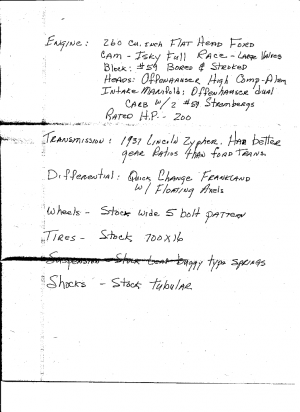 ENGINE: 260 cu. inch FLAT HEAD FORD
CAM - ISKY FULL RACE - LARGE VALVES
BLOCK: #59 BORED & STROKED
HEADS: OFFENHAUSER HIGH COMP-ALUM
INTAKE MANIFOLD: OFFENHAUSER DUAL
CARB W/ 2 #59 STROMBERGS
RATED H.P. - 200
TRANSMISSION: 1937 LINCOLN ZYPHER. HAD better
gear RATIOS than FORD TRANS.
DIFFERENTIAL: QUICK CHANGE FRANKLAND
W/ FLOATING AXELS
WHEELS - STOCK WIDE 5 bolt PATTERN
TIRES - STOCK 700X16
SUSPENSION - STOCK buggy type SPRINGS
SHOCKS - STOCK tubular